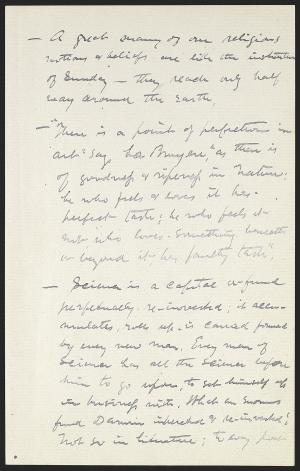 — A great many of our religious
notions & beliefs are like the institution
of Sunday — they reach only half
way around the Earth.
— "There is a point of perfection in
art" say, La Bruyere, "as there is
of goodness & ripeness in Nature:
he who feels & loves it has
perfect taste; he who feels it
not - who loves something beneath
or beyond it - has faulty taste".
— Science is a capital or fund
perpetually re-invested; it accu-
mulates, rolls up, is carried forward
by every new man. Every man of
science has all the science before
him to go upon, to set himself up
in business with. What an enormous
fund Darwin inherited & re-invested!
Not so in literature; to every poet